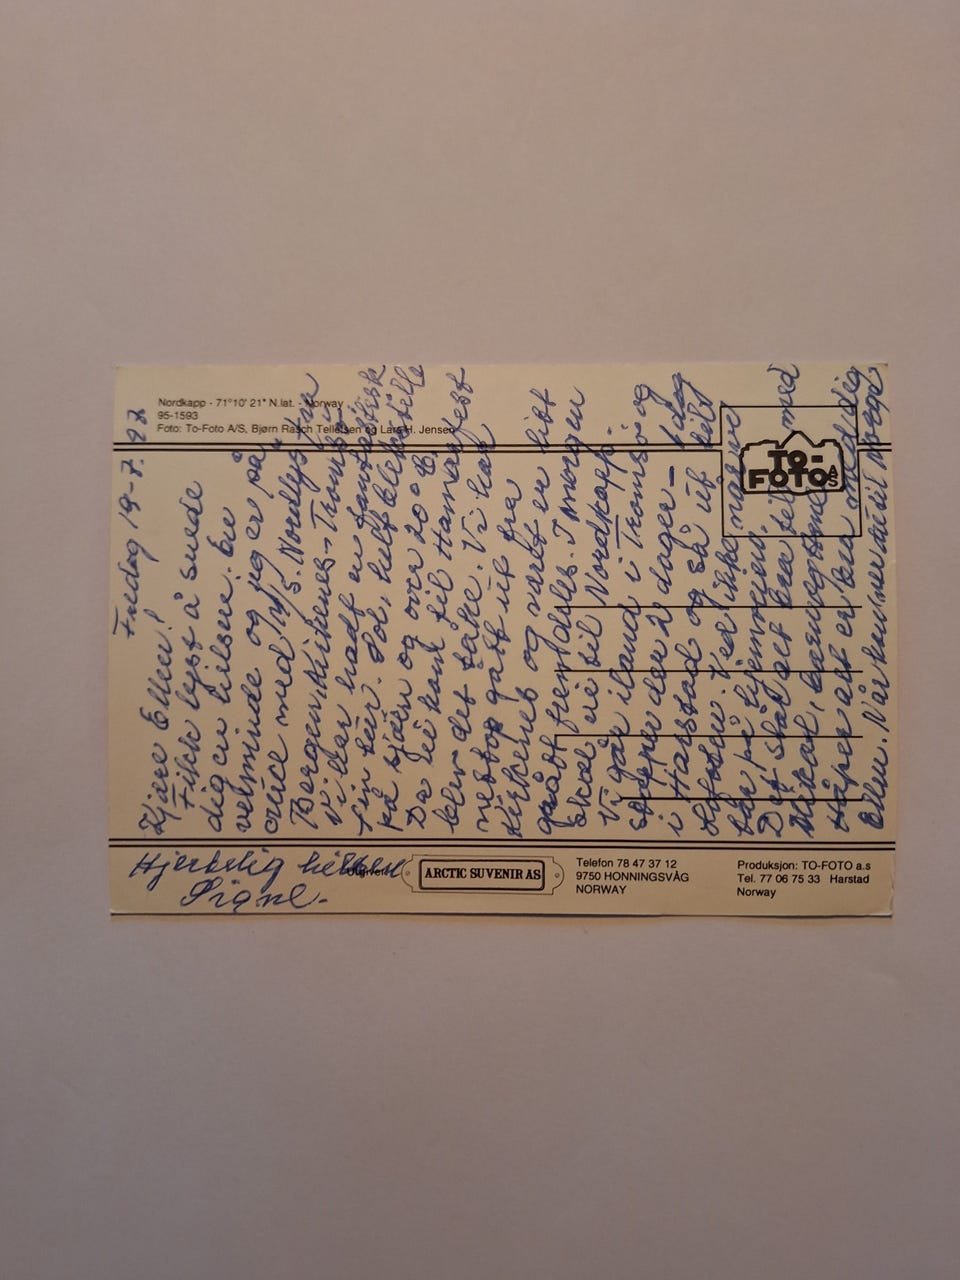 Nordkapp - 71°10' 21" N.lat. - Norway
95-1593
Foto: To-Foto A/S, Bjørn Rasch Tellefsen og Lars H. Jensen
TO-
FOTO A/S
Fredag 19-7.
Kjære Ellen!
Fikk lyst å sende
dig en hilsen. En
venninde og jeg er på
cruice med M/S. Nordlys fra
Bergen Kirkenes - Tromsø
Vi har hadt en fantastisk
fin tur. Sol, helt blikstille
på sjøen og over 20°
Da vi kom til Hamarfest
blev det tåke. Vi har
nettop gått ut fra
Kirkenes og været er litt
grått fremdeles. I morgen
skal vi til Nordkapp.
Vi går iland i Tromsø og
stopper der 2 dager -
i Harstad og så ut
Lofoten. Ved ikke
på hjemveien.
Det står alt bra til med
Mikal, barnebarnet
Håper alt er bra med dig
Ellen. Når kommer du til Norge
Hjertelig hilsen
Signe.
Utgiver:
ARCTIC SUVENIR AS
Telefon 78 47 37 12
9750 HONNINGSVÅG
NORWAY
Produksjon: TO-FOTO a.s
Tel. 77 06 75 33 Harstad
Norway